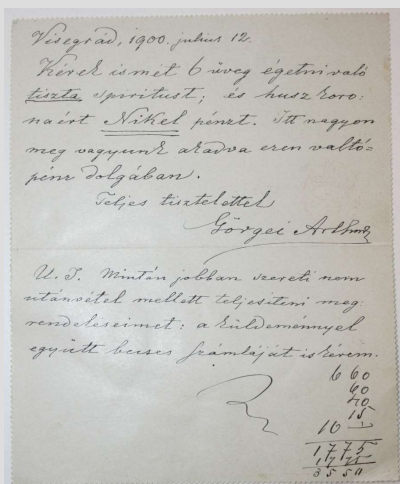 Visegrád, 1900. julius 12.
Kérek ismét 6 üveg égetni való
tiszta spiritust; és husz koro-
naért Nikel pénzt. Itt nagyon
meg vagyunk akadva ezen valtó=
pénz dolgában.
Teljes tisztelettel
Görgei Arthur
U. I. Mintán jobban szereti nem
utánvétel mellett teljesiteni meg-
rendeléseimet: a küldeménnyel
együtt becses számláját is kérem.
6 60
60
40
15
10
1775
1775
3550